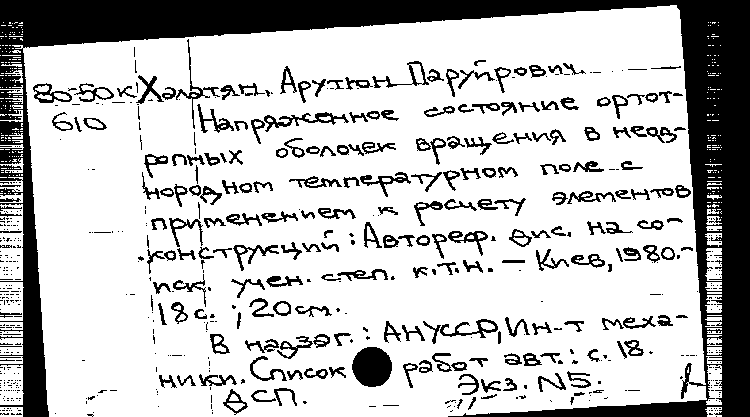 80-50к Халатян, Арутюн Паруйрович.
610 Напряженное состояние ортот-
ропных оболочек вращения в неод-
нородном температурном поле с
применением к расчету элементов
конструкций: Автореф. дис. на со-
иск. учен. степ. к.т.н. – Киев, 1980.-
18с. ; 20см.
В надзаг.: АНУССР, Ин-т меха-
ники. Список работ авт.: с. 18.
ДСП. Экз. N5.